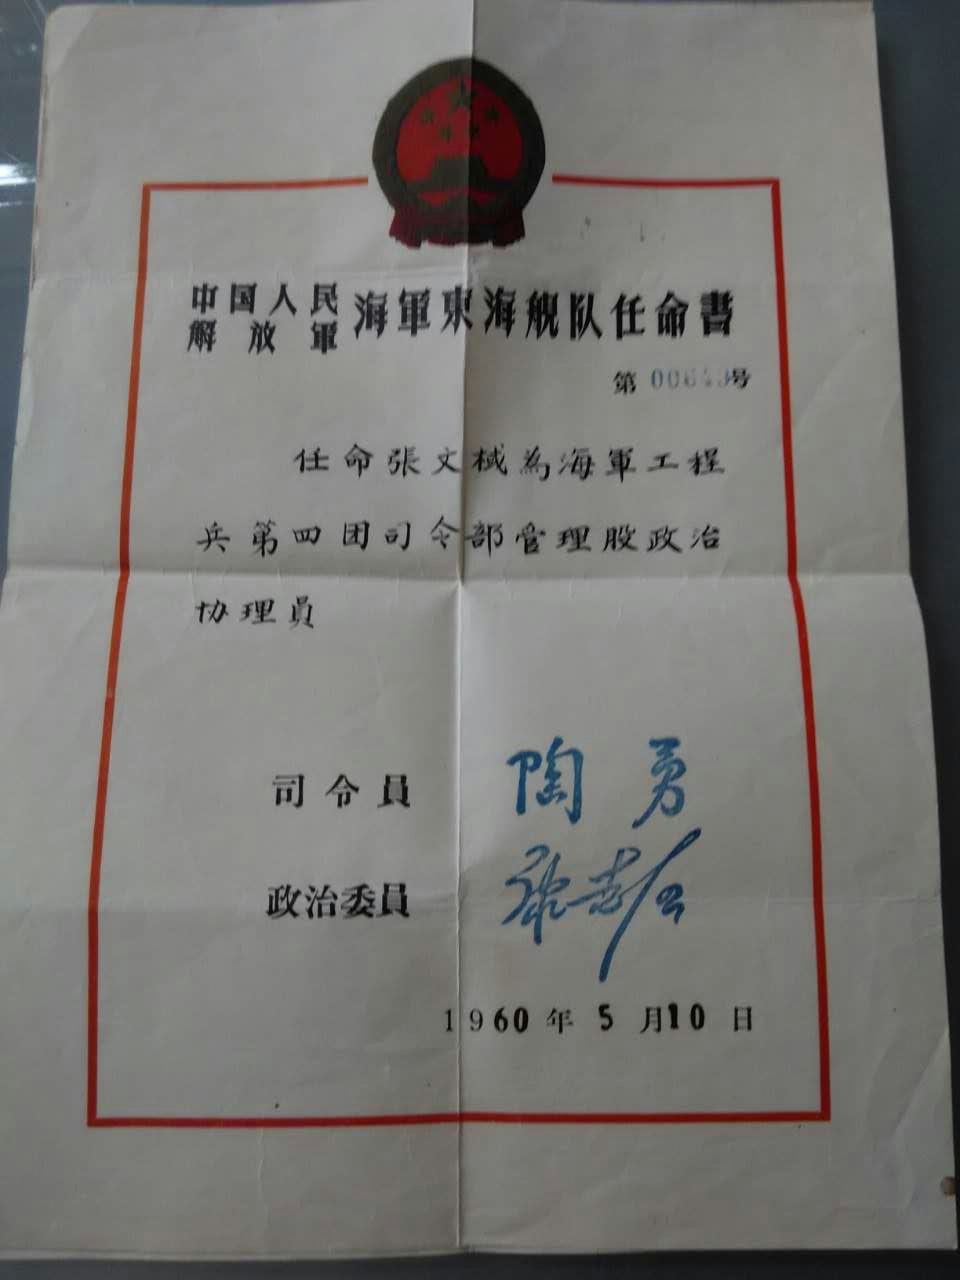 中国人民
解放軍
海軍東海舰队任命書
第 00649号
任命張文棫為海軍工程
兵第四团司令部管理股政治
协理員
司令員 陶勇
政治委員
1960年5月10日